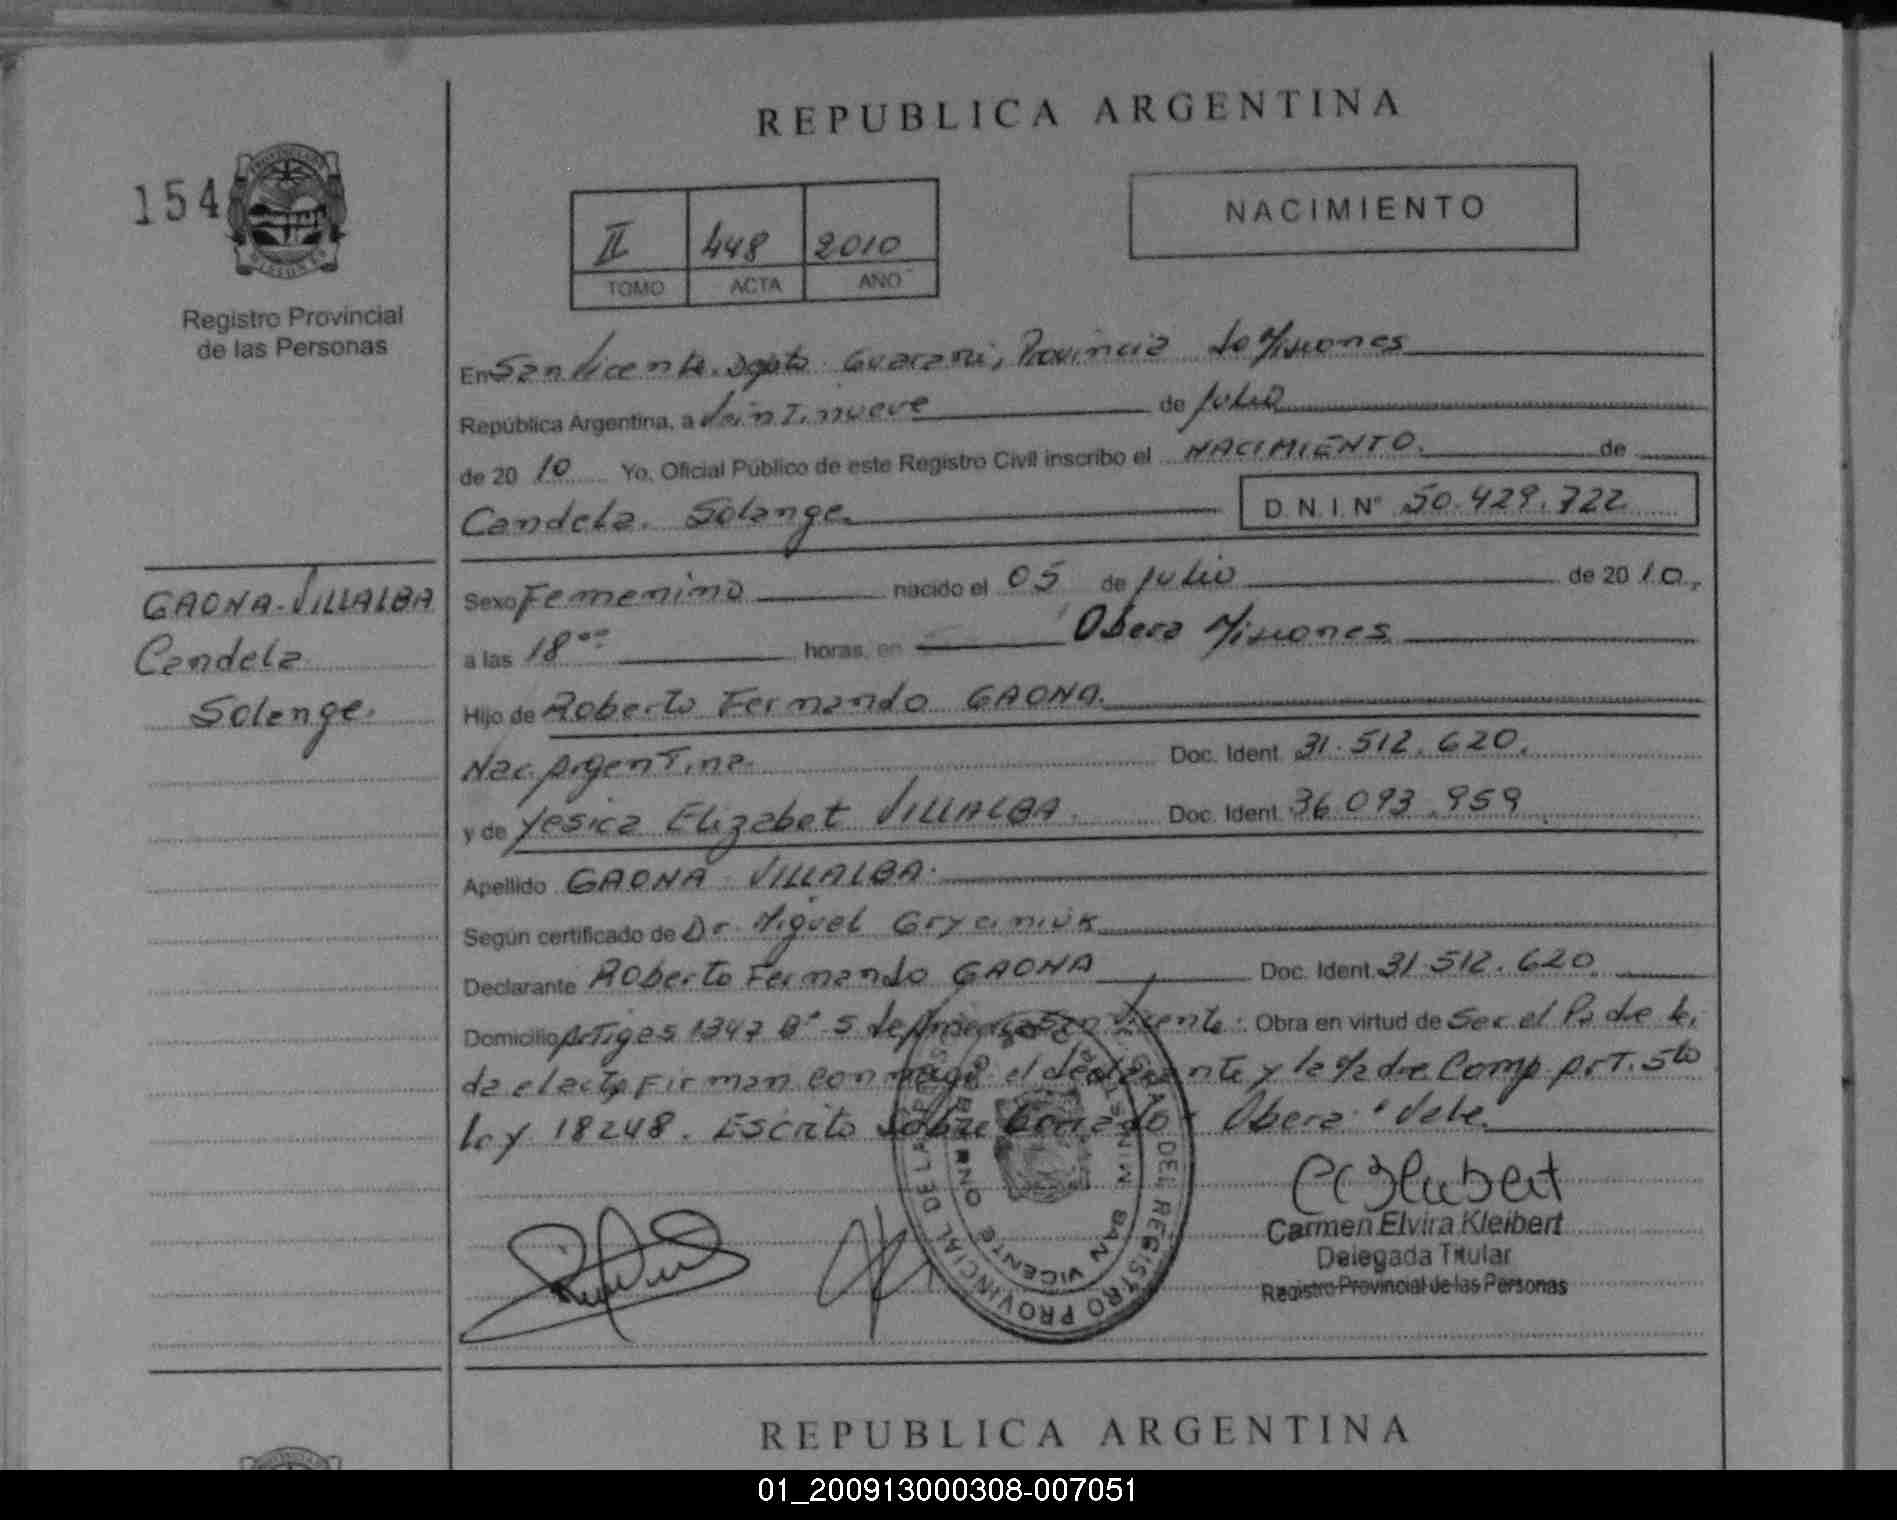 REPUBLICA ARGENTINA
154
PROVINCIA DE MISIONES
Registro Provincial
de las Personas
II 448 2010
TOMO ACTA AÑO
NACIMIENTO
En San Vicente. Dpto. Guarani, Provincia de Misiones
República Argentina, a Veintinueve de Julio
de 20 10 Yo, Oficial Público de este Registro Civil inscribo el NACIMIENTO. de
Candela. Solange. D.N.I. Nº 50.429.722
GAONA-VILLALBA
Candela
Solange.
Sexo Femenino nacido el 05 de Julio de 2010.,
a las 18ºº horas, en Obera Misiones
Hijo de Roberto Fernando GAONA.
Nac. Argentina. Doc. Ident. 31.512.620.
y de Yesica Elizabet VILLALBA. Doc. Ident. 36.093.959
Apellido GAONA VILLALBA.
Según certificado de Dr. Miguel Gryciniuk
Declarante Roberto Fernando GAONA Doc. Ident. 31.512.620.
Domicilio Artigas 1347 Bº S San Vicente. Obra en virtud de Ser el Padre le,
da el acta, Firman conmigo el declarante y la Madre Comp. Art. 5to
ley 18248. Escrito sobre borrado: Obera "Vale.
REGISTRO PROVINCIAL DE LAS PERSONAS
SAN VICENTE
Carmen Elvira Kleibert
Delegada Titular
Registro Provincial de las Personas
REPUBLICA ARGENTINA
01_200913000308-007051